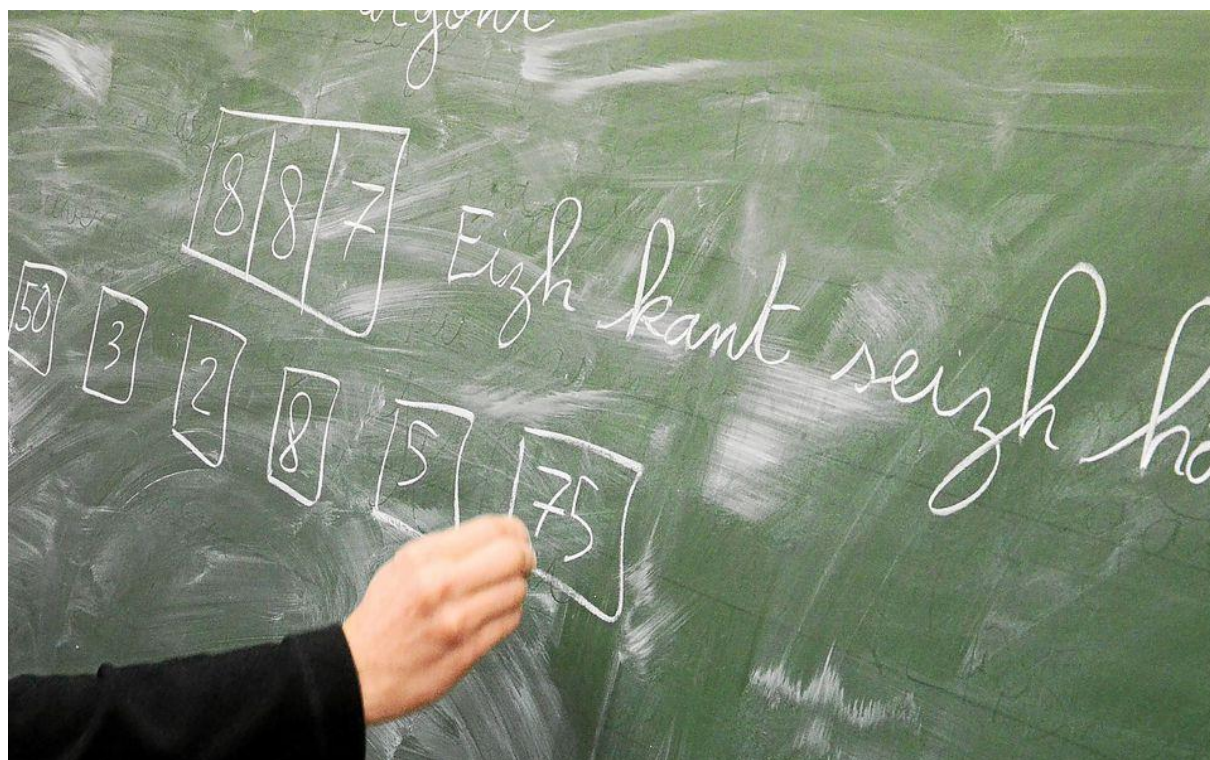 8 8 7 Eizh kant seizh
50 3 2 8 5 75